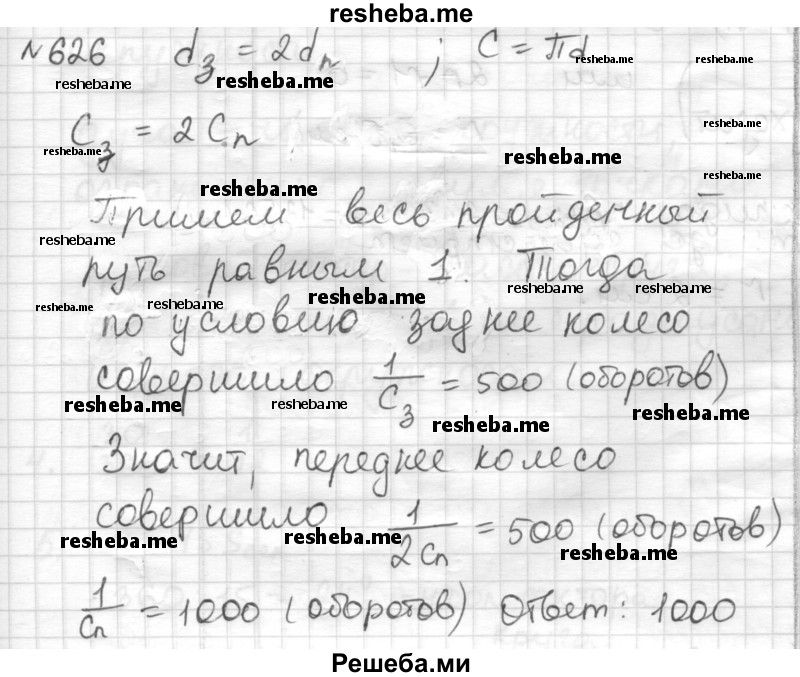 resheba.me
№626 dз = 2dп ; C = πd
resheba.me resheba.me resheba.me
Cз = 2Cп
resheba.me
resheba.me resheba.me
resheba.me resheba.me
Примем весь пройденный
resheba.me
путь равным 1. Тогда
resheba.me resheba.me resheba.me resheba.me resheba.me
по условию заднее колесо
совершило 1/Cз = 500 (оборотов)
resheba.me resheba.me resheba.me resheba.me
Значит, переднее колесо
совершило 1/2Cп = 500 (оборотов)
resheba.me resheba.me resheba.me
1/Cп = 1000 (оборотов) Ответ: 1000
Решеба.ми